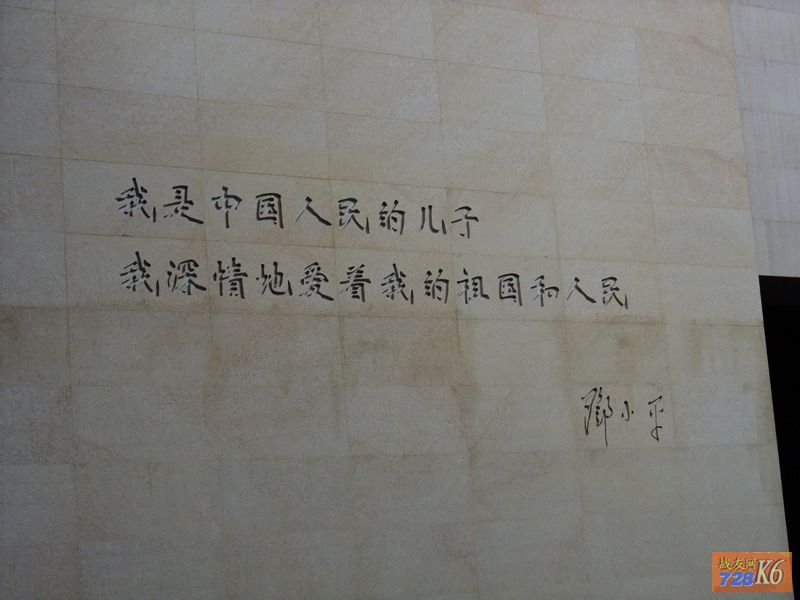 我是中国人民的儿子
我深情地爱着我的祖国和人民
鄧小平
战友网
728K6